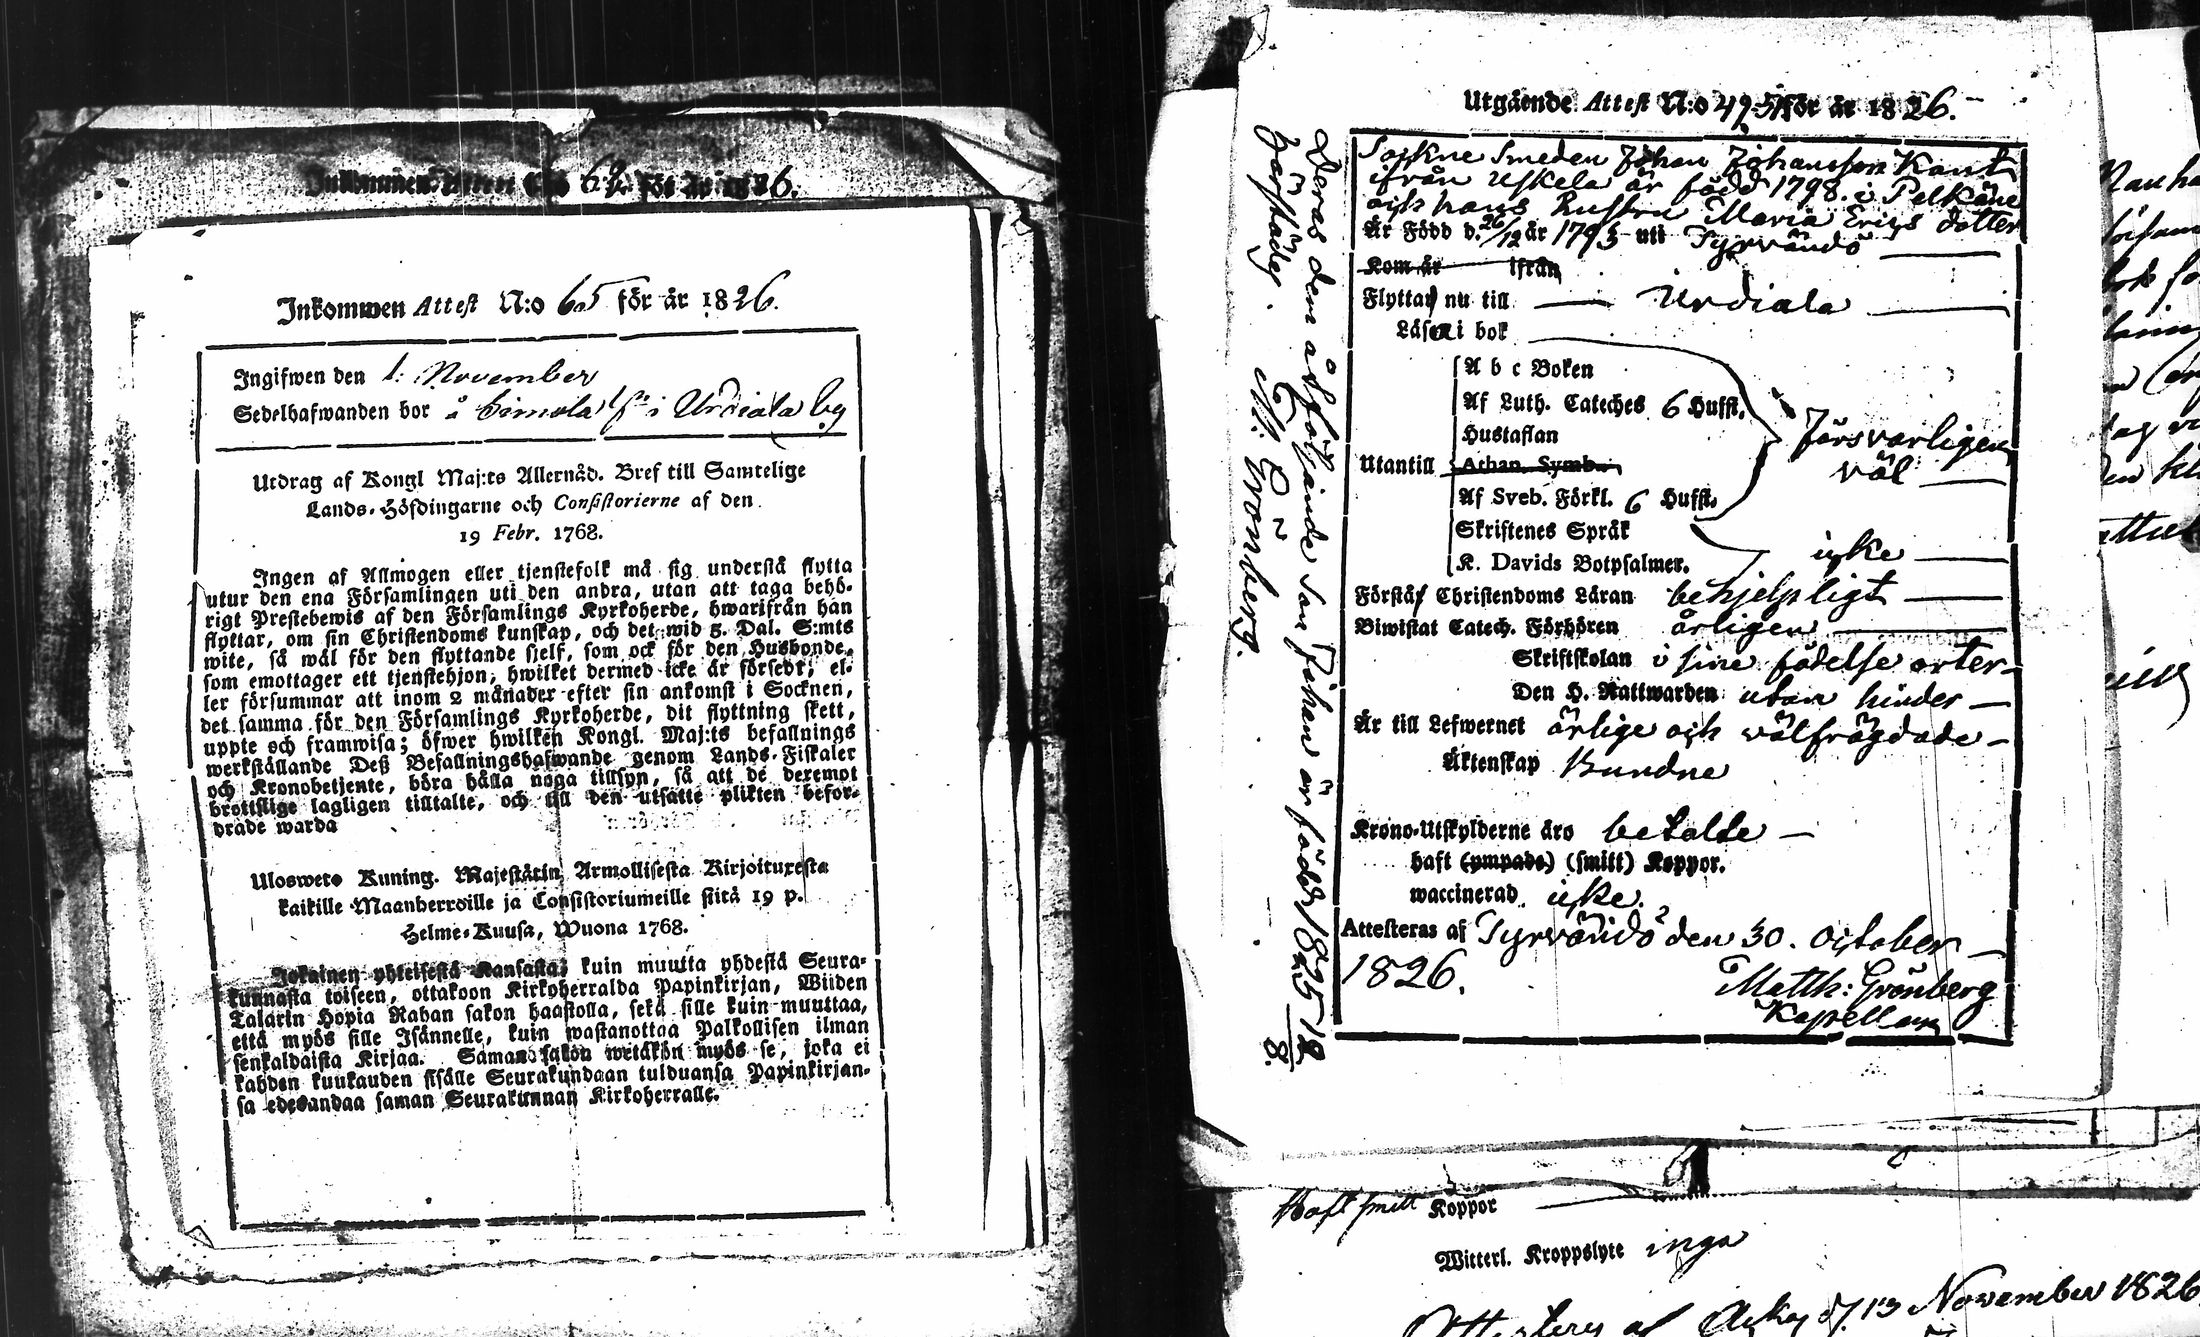 Inkommen Attest N:o 62 för år 1826.
Inkommen Attest N:o 65 för år 1826.
Ingifwen den 1. November
Sedelhafwanden bor å Cimola i Urdiala by
Utdrag af Kongl Maj:ts Allernåd. Bref till Samtelige
Lands-Höfdingarne och Consistorierne af den
19 Febr. 1768.
Ingen af Allmogen eller tjenstefolk må sig understå flytta
utur den ena Församlingen uti den andra, utan att taga behö-
rigt Prestebewis af den Församlings Kyrkoherde, hwarifrån han
flyttar, om sin Christendoms kunskap, och det wid 5. Dal. S:mts
wite, så wäl för den flyttande sjelf, som ock för den Husbonde,
som emottager ett tjenstehjon, hwilket dermed icke är försedt; el-
ler försummar att inom 2 månader efter sin ankomst i Socknen,
det samma för den Församlings Kyrkoherde, dit flyttning skett,
uppte och framwisa; öfwer hwilken Kongl. Maj:ts befallnings
werkställande Deß Befallningshafwande genom Lands-Fiskaler
och Kronobetjente, böra hålla noga tillsyn, så att de deremot
brottslige lagligen tilltalte, och till den utsatte plikten befor-
drade warda
Ulosweto Kuning. Majestätin Armollisesta Kirjoituxesta
kaikille Maanherroille ja Consistoriumeille siitä 19 p.
Helme-Kuusa, Wuona 1768.
Jokainen yhteisestä Kansasta, kuin muutta yhdestä Seura-
kunnasta toiseen, ottakoon Kirkoherralda Papinkirjan, Wiiden
Talarin Hopia Rahan sakon haastolla, sekä sille kuin muuttaa,
että myös sille Isännelle, kuin wastanottaa Palkollisen ilman
senkaldaista Kirjaa. Saman sakon wetäkön myös se, joka ei
kahden kuukauden sisälle Seurakundaan tulduansa Papinkirjan-
sa edesandaa saman Seurakunnan Kirkoherralle.
Utgående Attest N:o 49 för år 1826.
Sockne Smeden Johan Johansson Kant
ifrån Uskela är född 1798. i Pelkäne
och hans Hustru Maria Erics dotter
Är Född d. 26/12 år 1793 uti Tyrvändö
Kom år ifrån
Flyttar nu till Urdiala
Läsa i bok
A b c Boken
Af Luth. Cateches 6 Hufst.
Hustaflan
Utantill Athan. Symb.
Af Sveb. Förkl. 6 Hufst.
Skriftenes Språk
K. Davids Botpsalmer.
Försvarligen
väl
icke
Förstår Christendoms Läran behjelpligt
Biwistat Catech. Förhören årligen
Skriftskolan i sine födelse orter
Den H. Nattwarden utan hinder
Är till Lefwernet ärlige och välfrägdade
Äktenskap Bundne
Krono-Utskylderne äro betalte
haft (ympade) (smitt) Koppor.
waccinerad icke.
Attesteras af Tyrvändö den 30. October
1826.
Matth: Grönberg
Kapellan
Deras dem åtföljande Son Johan är född 1825 12/8.
M: Grönberg.
Haft smitt Koppor
Witterl. Kroppslyte inga
November 1826